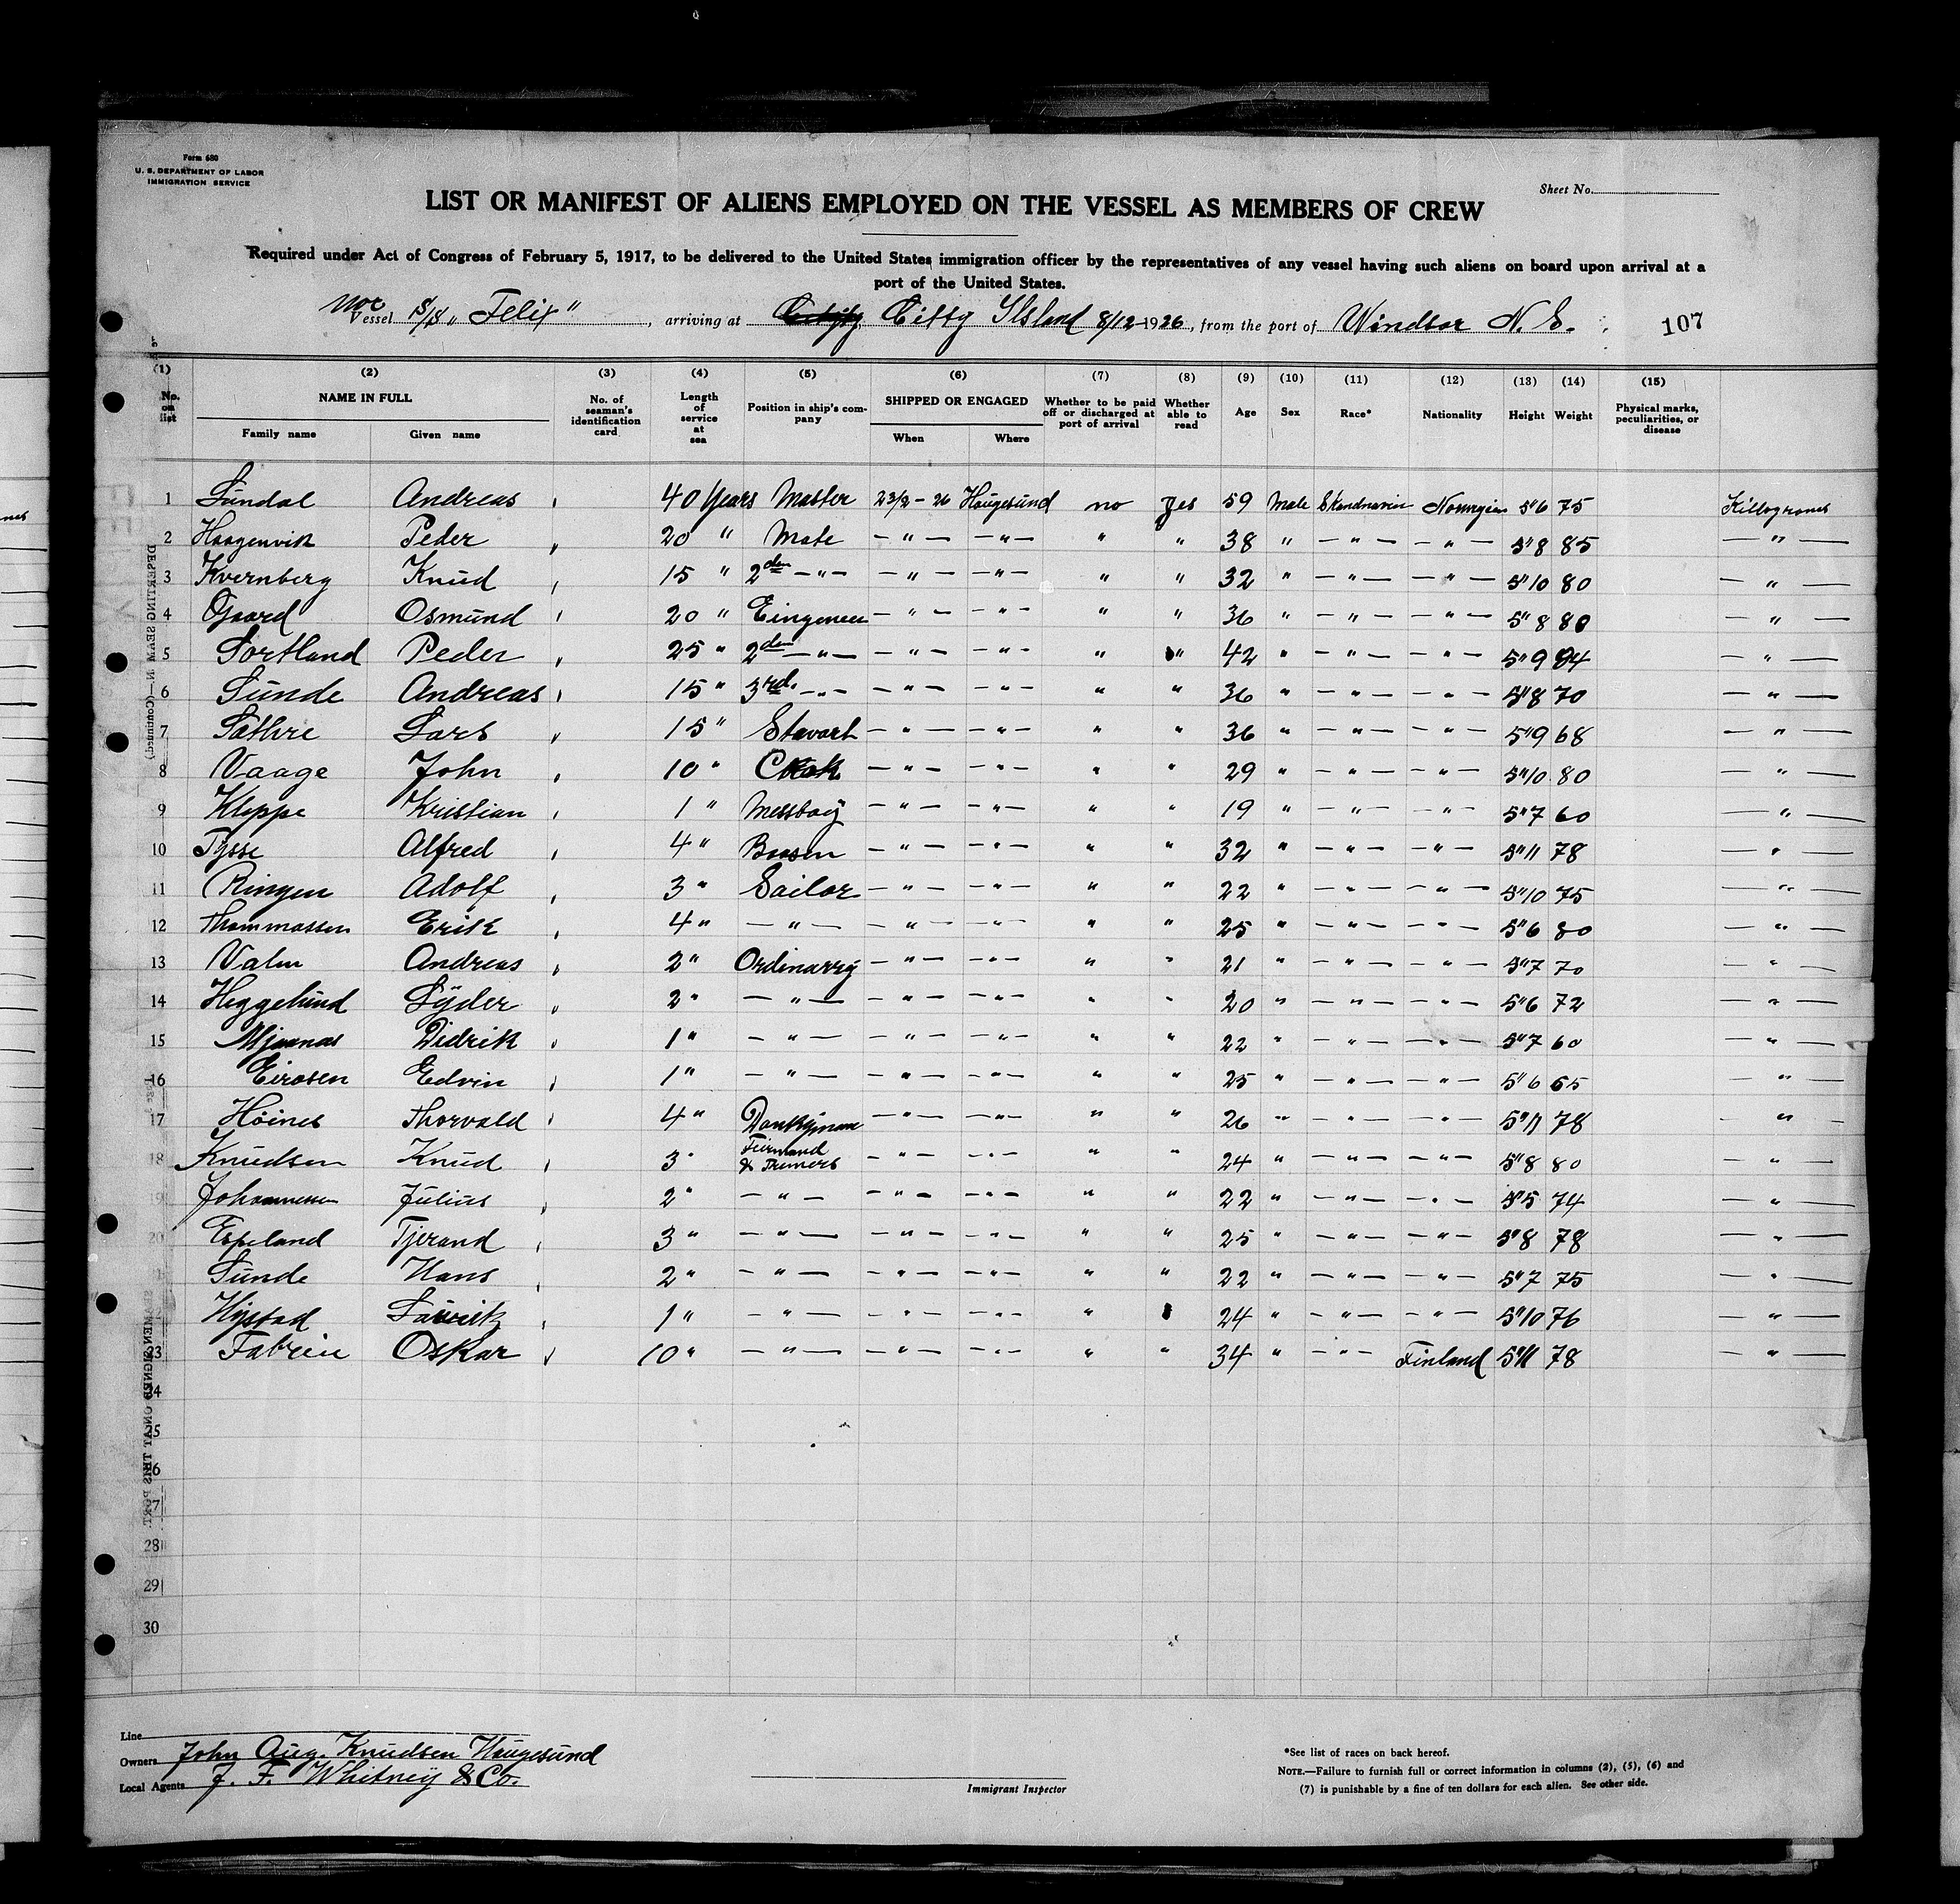 Form 680
U. S. DEPARTMENT OF LABOR
IMMIGRATION SERVICE
Sheet No.
LIST OR MANIFEST OF ALIENS EMPLOYED ON THE VESSEL AS MEMBERS OF CREW
Required under Act of Congress of February 5, 1917, to be delivered to the United States immigration officer by the representatives of any vessel having such aliens on board upon arrival at a
port of the United States.
Nor
Vessel S/S „Felix", arriving at Citty Ilsland 8/12-1926, from the port of Windsor N. S. 107
(1) (2) (3) (4) (5) (6) (7) (8) (9) (10) (11) (12) (13) (14) (15)
No. on list NAME IN FULL Family name Given name No. of seaman's identification card Length of service at sea Position in ship's company SHIPPED OR ENGAGED When Where Whether to be paid off or discharged at port of arrival Whether able to read Age Sex Race* Nationality Height Weight Physical marks, peculiarities, or disease
1 Sundal Andreas 40 Years Master 23/2-26 Haugesund no yes 59 Male Skandnavien Norwgien 5"6 75 Killograms
2 Haagenvik Peder 20 " Mate — " — — " — " " 38 " — " — — " — 5"8 85 — " —
3 Kvernberg Knud 15 " 2den — " — — " — — " — " " 32 " — " — — " — 5"10 80 — " —
4 Gjaard Osmund 20 " Eingeneer — " — — " — " " 36 " — " — — " — 5"8 80 — " —
5 Sortland Peder 25 " 2den — " — — " — — " — " " 42 " — " — — " — 5"9 94 — " —
6 Sunde Andreas 15 " 3rd. — " — — " — — " — " " 36 " — " — — " — 5"8 70 — " —
7 Sathre Lars 15 " Stavart — " — — " — " " 36 " — " — — " — 5"9 68 — " —
8 Vaage John 10 " Cook — " — — " — " " 29 " — " — — " — 5"10 80 — " —
9 Kleppe Kristian 1 " Messboy — " — — " — " " 19 " — " — — " — 5"7 60 — " —
10 Tysse Alfred 4 " Boosen — " — — " — " " 32 " — " — — " — 5"11 78 — " —
11 Ringen Adolf 3 " Sailor — " — — " — " " 22 " — " — — " — 5"10 75 — " —
12 Thommassen Erik 4 " — " — — " — — " — " " 25 " — " — — " — 5"6 80 — " —
13 Valen Andreas 2 " Ordinarry — " — — " — " " 21 " — " — — " — 5"7 70 — " —
14 Heggelund Syder 2 " — " — — " — — " — " " 20 " — " — — " — 5"6 72 — " —
15 Mjaanas Didrik 1 " — " — — " — — " — " " 22 " — " — — " — 5"7 60 — " —
16 Eirosen Edvin 1 " — " — — " — — " — " " 25 " — " — — " — 5"6 65 — " —
17 Höines Thorvald 4 " Donkyman — " — — " — " " 26 " — " — — " — 5"11 78 — " —
18 Knudsen Knud 3 " Feirmand & Trimers — " — — " — " " 24 " — " — — " — 5"8 80 — " —
19 Johannessen Julius 2 " — " — — " — — " — " " 22 " — " — — " — 5"5 74 — " —
20 Espeland Tjerand 3 " — " — — " — — " — " " 25 " — " — — " — 5"8 78 — " —
21 Sunde Hans 2 " — " — — " — — " — " " 22 " — " — — " — 5"7 75 — " —
Hystad Laurik 1 " — " — — " — — " — " " 24 " — " — — " — 5"10 76 — " —
23 Fabrin Oskar 10 " — " — — " — — " — " " 34 " — " — Finland 5"11 78 — " —
24
25
26
27
28
29
30
Line
Owners John Aug. Knudsen Haugesund
Local Agents J. F. Whitney & Co.
Immigrant Inspector
*See list of races on back hereof.
NOTE.—Failure to furnish full or correct information in columns (2), (5), (6) and
(7) is punishable by a fine of ten dollars for each alien. See other side.